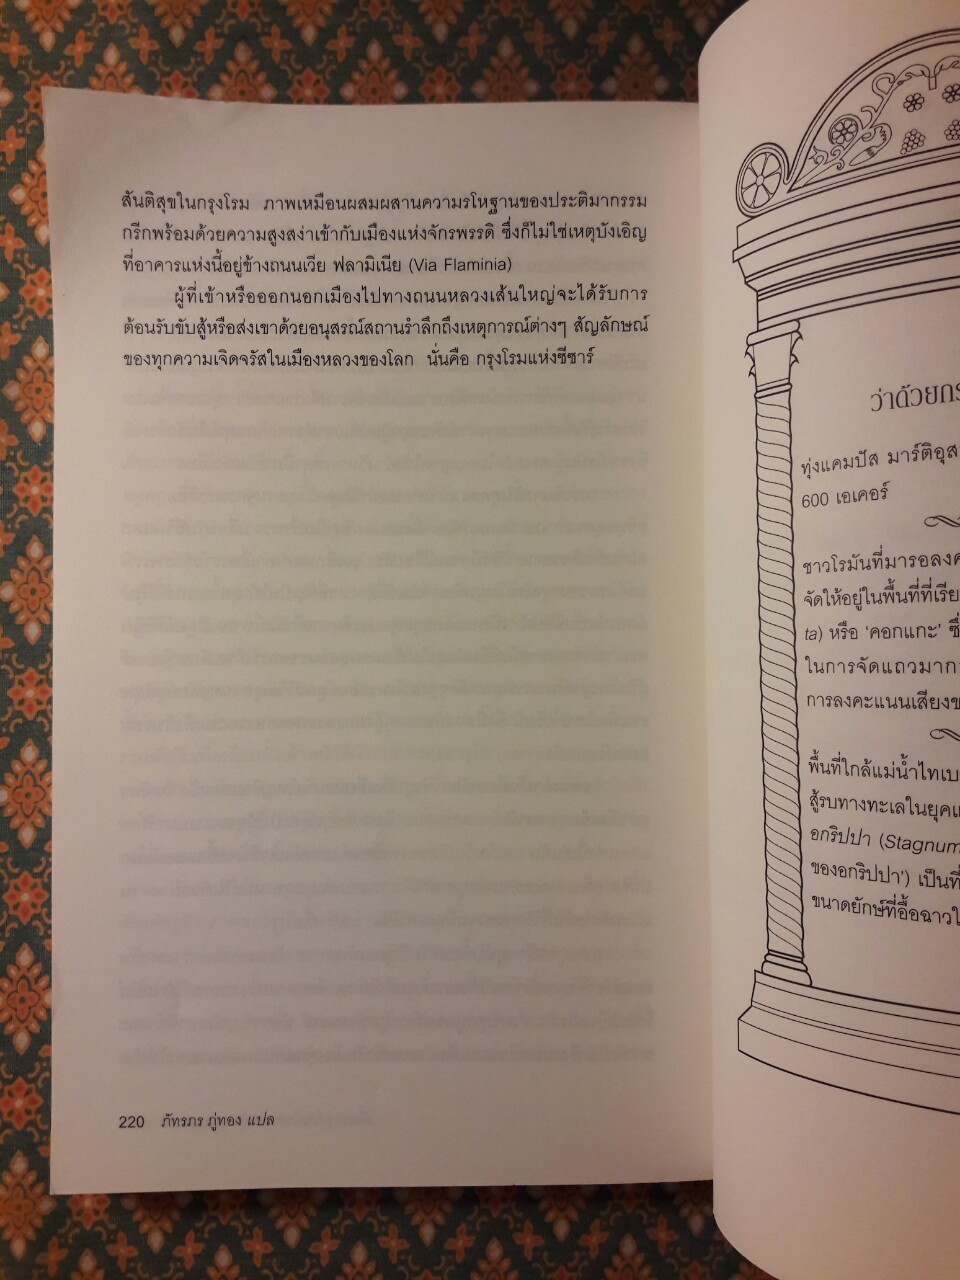 สันติสุขในกรุงโรม ภาพเหมือนผสมผสานความรโหฐานของประติมากรรม
กรีกพร้อมด้วยความสูงสง่าเข้ากับเมืองแห่งจักรพรรดิ ซึ่งก็ไม่ใช่เหตุบังเอิญ
ที่อาคารแห่งนี้อยู่ข้างถนนเวีย ฟลามิเนีย (Via Flaminia)
ผู้ที่เข้าหรือออกนอกเมืองไปทางถนนหลวงเส้นใหญ่จะได้รับการ
ต้อนรับขับสู้หรือส่งเขาด้วยอนุสรณ์สถานรำลึกถึงเหตุการณ์ต่างๆ สัญลักษณ์
ของทุกความเจิดจรัสในเมืองหลวงของโลก นั่นคือ กรุงโรมแห่งซีซาร์
220 ภัทรภร ภู่ทอง แปล
ว่าด้วยกร
ทุ่งแคมปัส มาร์ติอุส
600 เอเคอร์
ชาวโรมันที่มารอลงค
จัดให้อยู่ในพื้นที่ที่เรีย
ta) หรือ ‘คอกแกะ’ ซึ่
ในการจัดแถวมาก
การลงคะแนนเสียงข
พื้นที่ใกล้แม่น้ำไทเบ
สู้รบทางทะเลในยุค
อกริปปา (Stagnum
ของอกริปปา’) เป็นที่
ขนาดยักษ์ที่อื้อฉาวใ